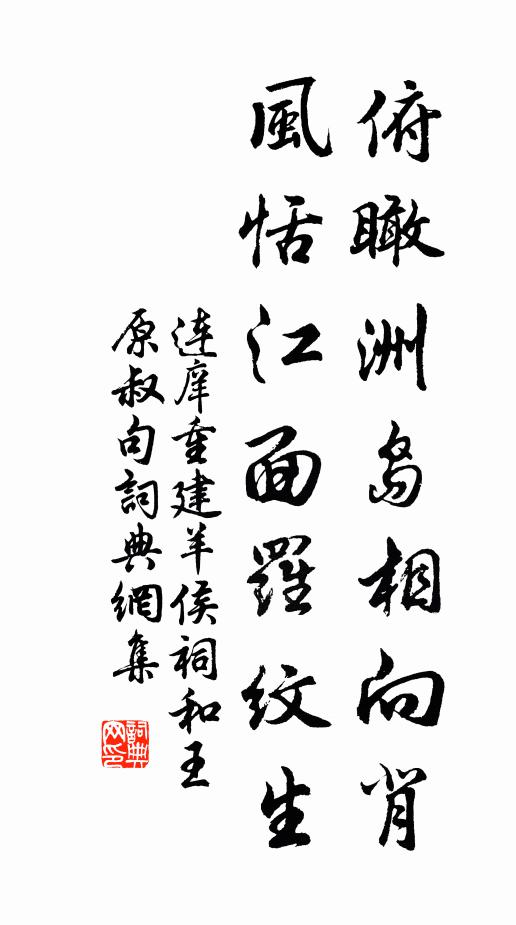 俯瞰洲島相向背
風恬江面羅紋生
連庠重建羊侯祠和王
原叔句詞典網集
詞典網印